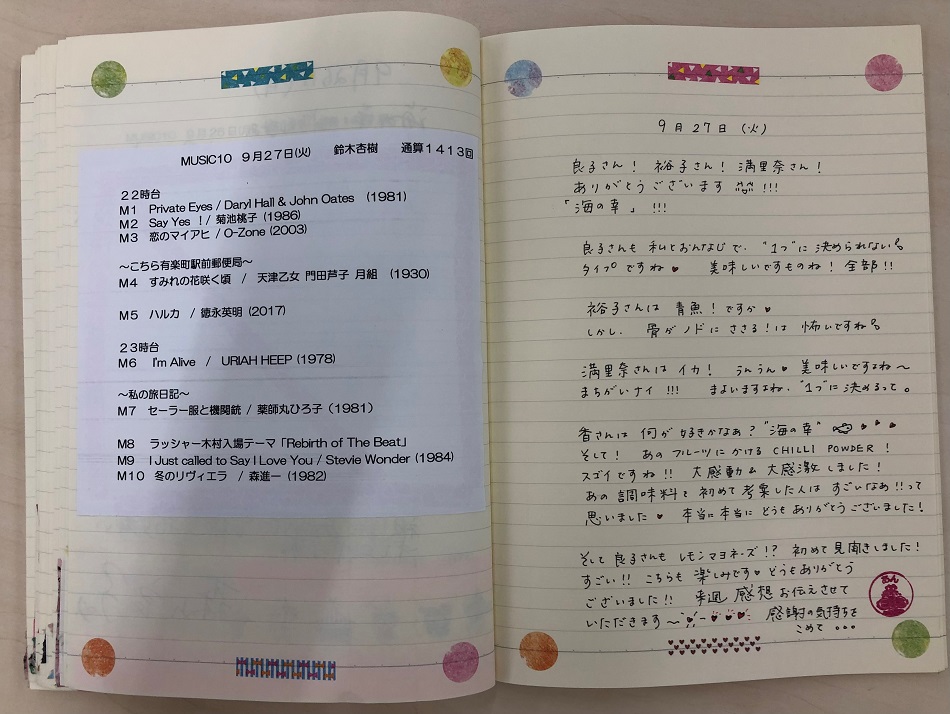 MUSIC10 9月27日(火) 鈴木杏樹 通算1413回
22時台
M1 Private Eyes / Daryl Hall & John Oates (1981)
M2 Say Yes ! / 菊池桃子 (1986)
M3 恋のマイアヒ / O-Zone (2003)
～こちら有楽町駅前郵便局～
M4 すみれの花咲く頃 / 天津乙女 門田芦子 月組 (1930)
M5 ハルカ / 徳永英明 (2017)
23時台
M6 I'm Alive / URIAH HEEP (1978)
～私の旅日記～
M7 セーラー服と機関銃 / 薬師丸ひろ子 (1981)
M8 ラッシャー木村入場テーマ「Rebirth of The Beat」
M9 I Just called to Say I Love You / Stevie Wonder (1984)
M10 冬のリヴィエラ / 森進一 (1982)
9月27日 (火)
良子さん! 裕子さん! 満里奈さん!
ありがとうございます !!!
「海の幸」 !!!
良子さんも 私とおんなじで、"1つ"に 決められない。
タイプ ですね♥ 美味しいですものね! 全部!!
裕子さんは 青魚! ですか♥
しかし、 骨が ノドに ささる! は 怖いですね。
満里奈さんは イカ! うんうん♥ 美味しいですよね～
まちがいナイ !!! まよいますよね、"1つ"に 決めるって。
香さんは 何が 好きかなぁ? "海の幸"
そして! あの フルーツに かける CHILLI POWDER !
スゴイですね!! 大感動&大感激しました!
あの 調味料を 初めて 考案した人は すごいなぁ!!って
思いました♥ 本当に本当に どうも ありがとうございました!
そして 良子さんも レモンマヨネーズ!? 初めて 見聞きしました!
すごい!! こちらも 楽しみです♥ どうもありがとう
ございました!! 来週 感想 お伝えさせて
いただきます～ 感謝の気持ちを
こめて 。。。
あん